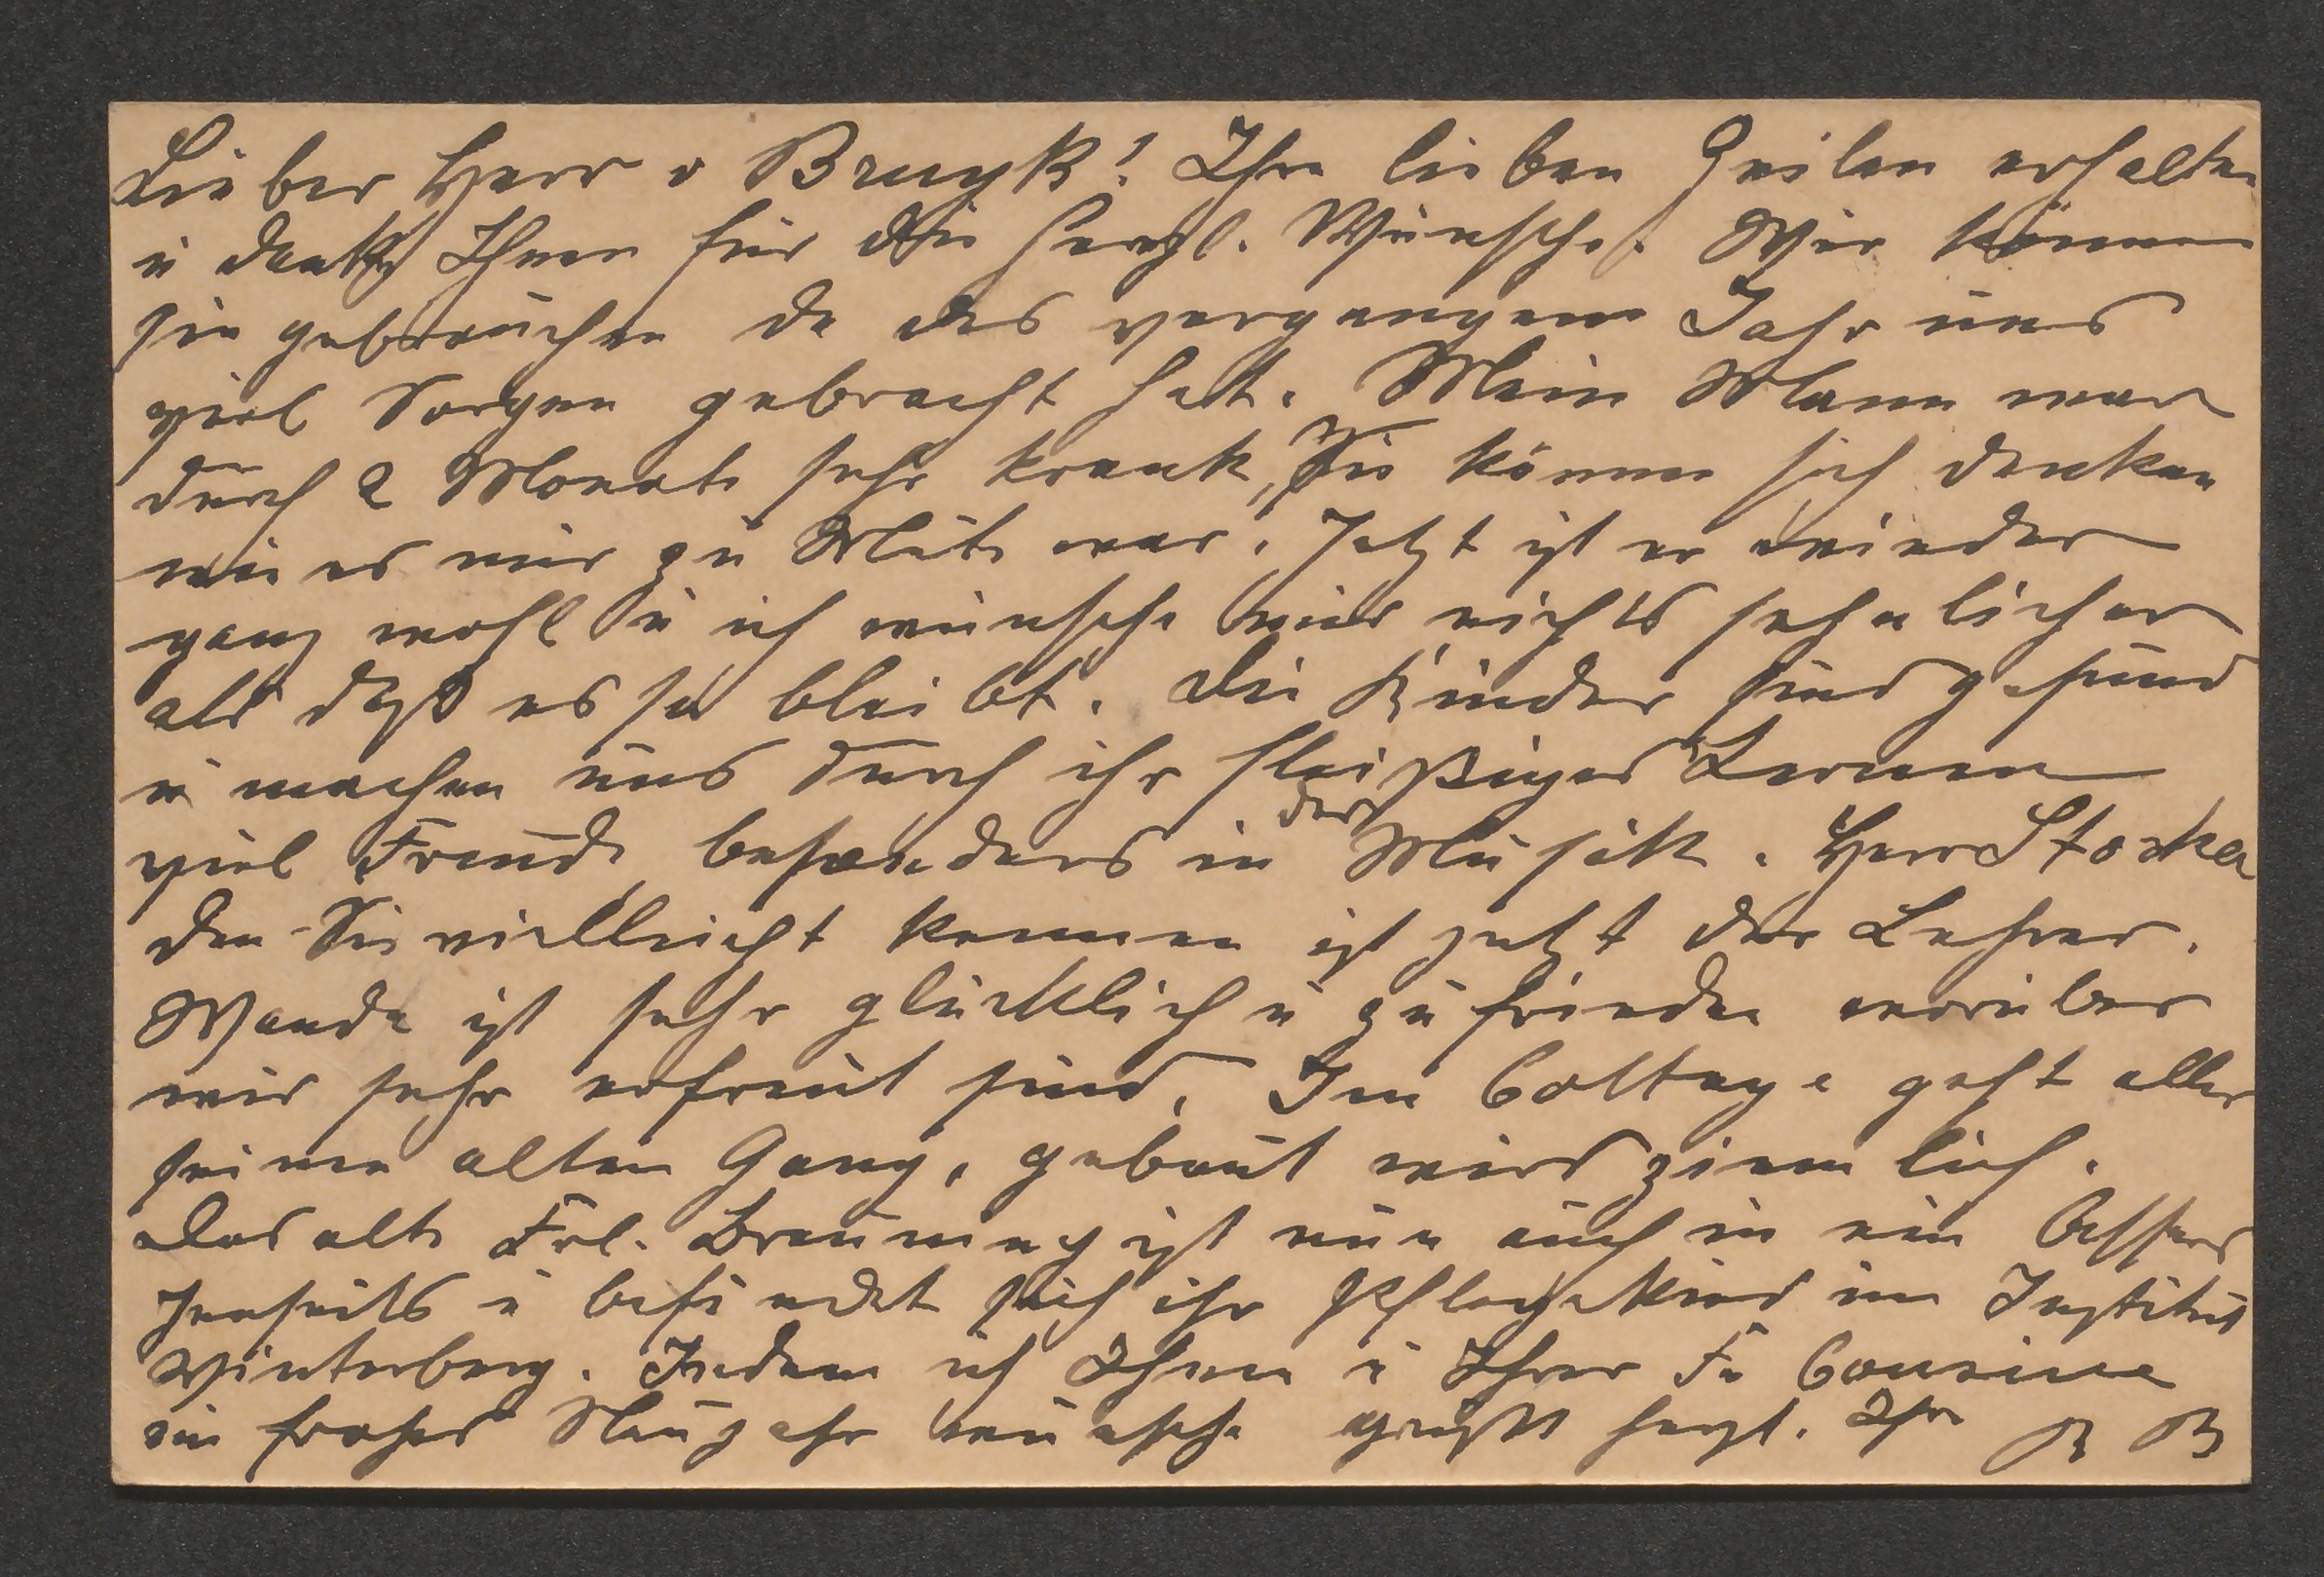 Lieber Herr v Bruyk! Ihre lieben Zeilen erhalten
u danke Ihnen für die herzl. Wünsche. Wir können
sie gebrauchen da das vergangene Jahr uns
viel Sorgen gebracht hat. Mein Mann war
durch 2 Monate sehr krank, Sie können sich denken
wie es mir zu Mute war. Jetzt ist er wieder
ganz wohl u ich wünsche mir nichts sehnlicher
als daß es so bleibt. Die Kinder sind gesund
u machen uns durch ihr fleißiges Lernen
viel Freude besonders in der Musik. Herr Stocka
den Sie vielleicht kennen ist jetzt der Lehrer.
Wanda ist sehr glücklich u zufrieden worüber
wir sehr erfreut sind. Im Cottage geht alles
seinen alten Gang, gebaut wird ziemlich.
Das alte Frl. Breuning ist nun auch in ein besseres
Jenseits u befindet sich ihr Pflegekind im Institut
Winterberg. Indem ich Ihnen u Ihrer Fr Cousine
ein frohes Neujahr wünsche grüßt herzl. Ihre